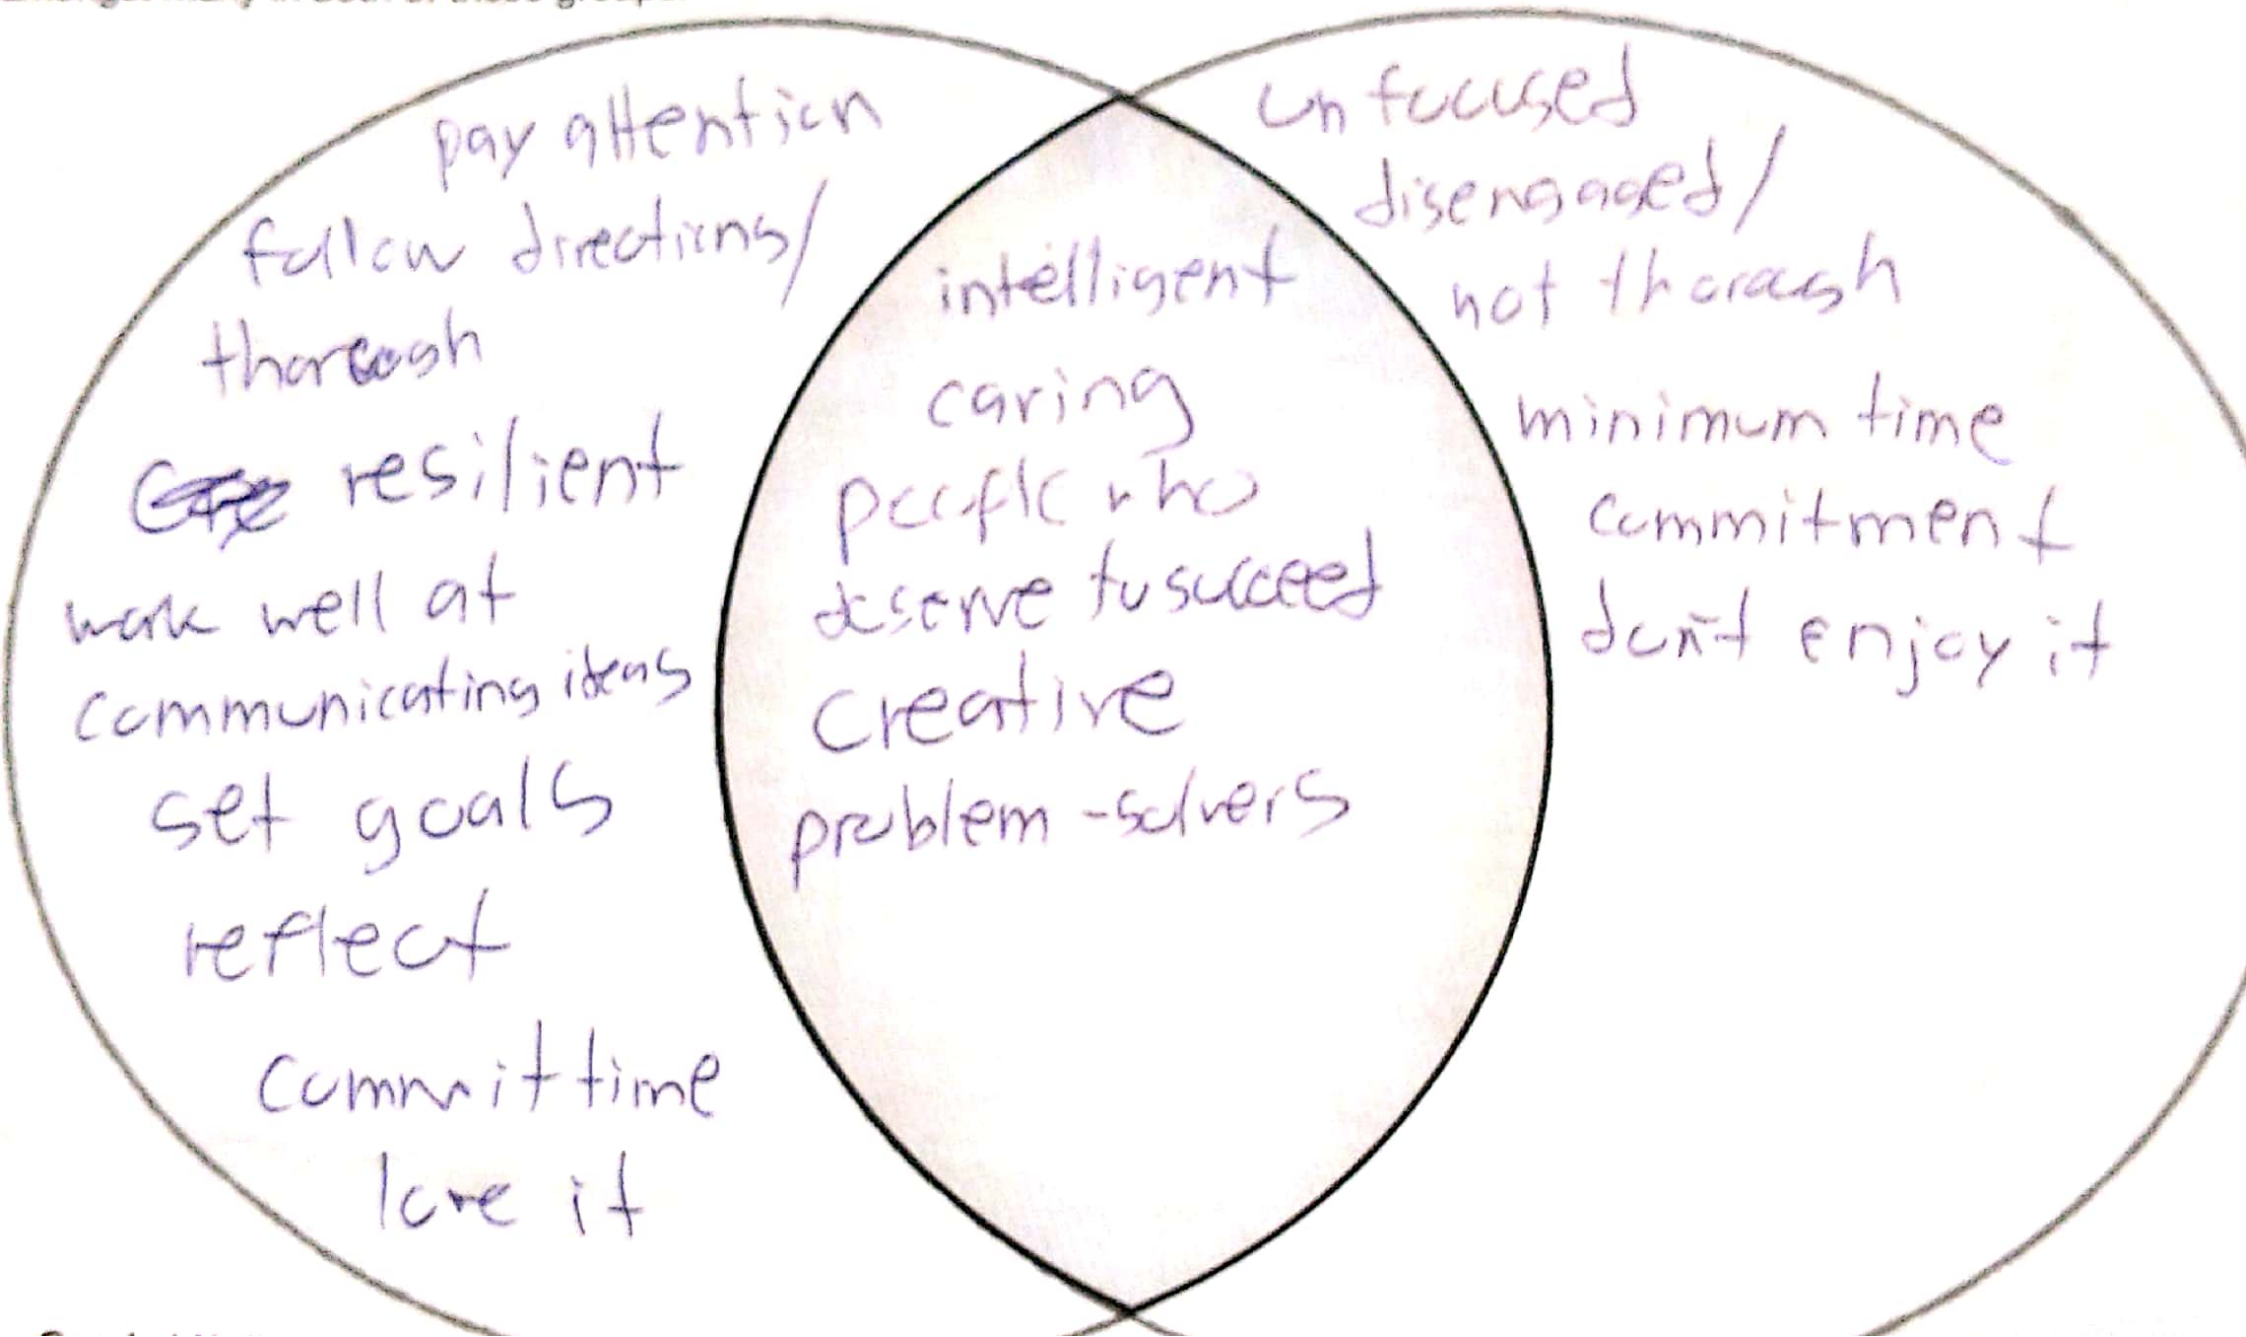 pay attention
follow directions/
thorough
resilient
work well at
communicating ideas
set goals
reflect
commit time
love it
intelligent
caring
people who
deserve to succeed
creative
problem-solvers
unfocused
disengaged/
not thorough
minimum time
commitment
don't enjoy it